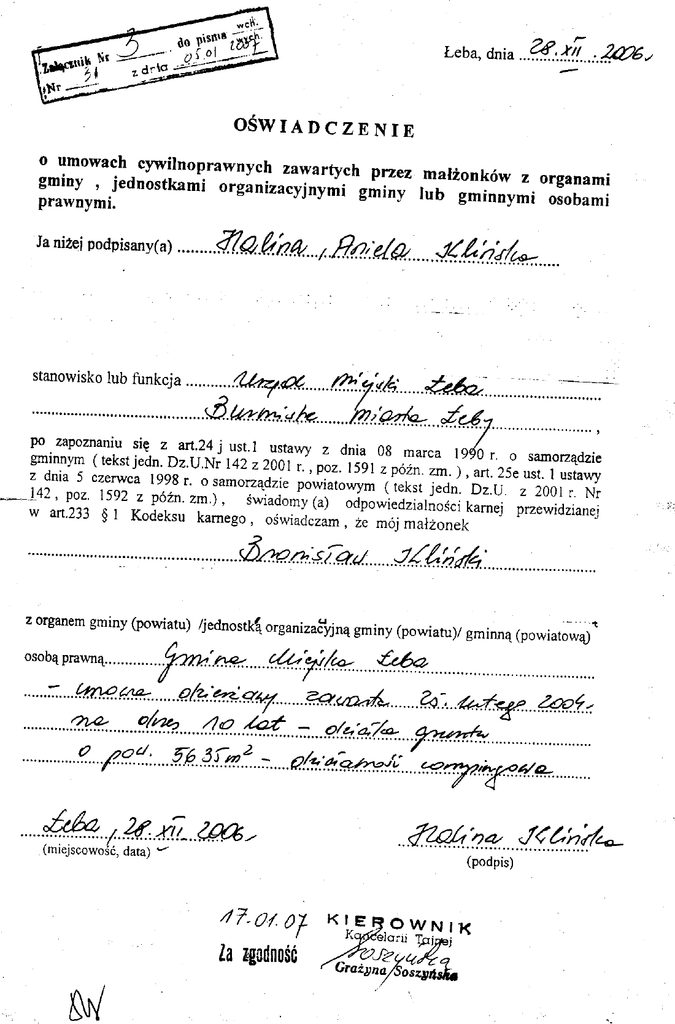 Załącznik Nr 3 do pisma wch.
wych.
Nr 31 z dnia 05.01 2007
Łeba, dnia 28.XII.2006r
OŚWIADCZENIE
o umowach cywilnoprawnych zawartych przez małżonków z organami
gminy , jednostkami organizacyjnymi gminy lub gminnymi osobami
prawnymi.
Ja niżej podpisany(a) Halina, Aniela Klińska
stanowisko lub funkcja Urząd Miejski Łeba
Burmistrz Miasta Łeby ,
po zapoznaniu się z art.24 j ust.1 ustawy z dnia 08 marca 1990 r. o samorządzie
gminnym ( tekst jedn. Dz.U.Nr 142 z 2001 r. , poz. 1591 z późn. zm. ) , art. 25e ust. 1 ustawy
z dnia 5 czerwca 1998 r. o samorządzie powiatowym ( tekst jedn. Dz.U. z 2001 r. Nr
142 , poz. 1592 z późn. zm.) , świadomy (a) odpowiedzialności karnej przewidzianej
w art.233 § 1 Kodeksu karnego , oświadczam , że mój małżonek
Bronisław Kliński
z organem gminy (powiatu) /jednostką organizacyjną gminy (powiatu)/ gminną (powiatową)
osobą prawną Gmina Miejska Łeba
- umowa dzierżawy zawarta 25. lutego 2004r.
na okres 10 lat - działka gruntu
o pow. 5635 m² - działalność campingowa
Łeba, 28.XII 2006r Halina Klińska
(miejscowość, data) (podpis)
17.01.07 KIEROWNIK
Kancelarii Tajnej
Za zgodność Soszyńska
Grażyna Soszyńska